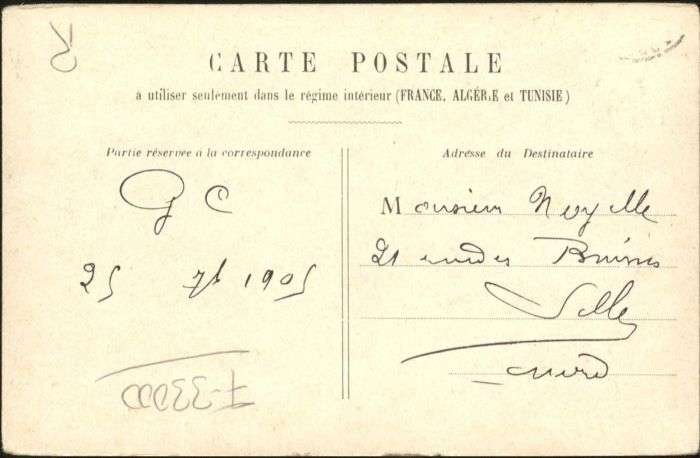 CARTE POSTALE
à utiliser seulement dans le régime intérieur (FRANCE, ALGÉRIE et TUNISIE)
Partie réservée à la correspondance
G C
25 7b 1905
Adresse du Destinataire
Monsieur
21 rue des
Lille
Nord
F-33000